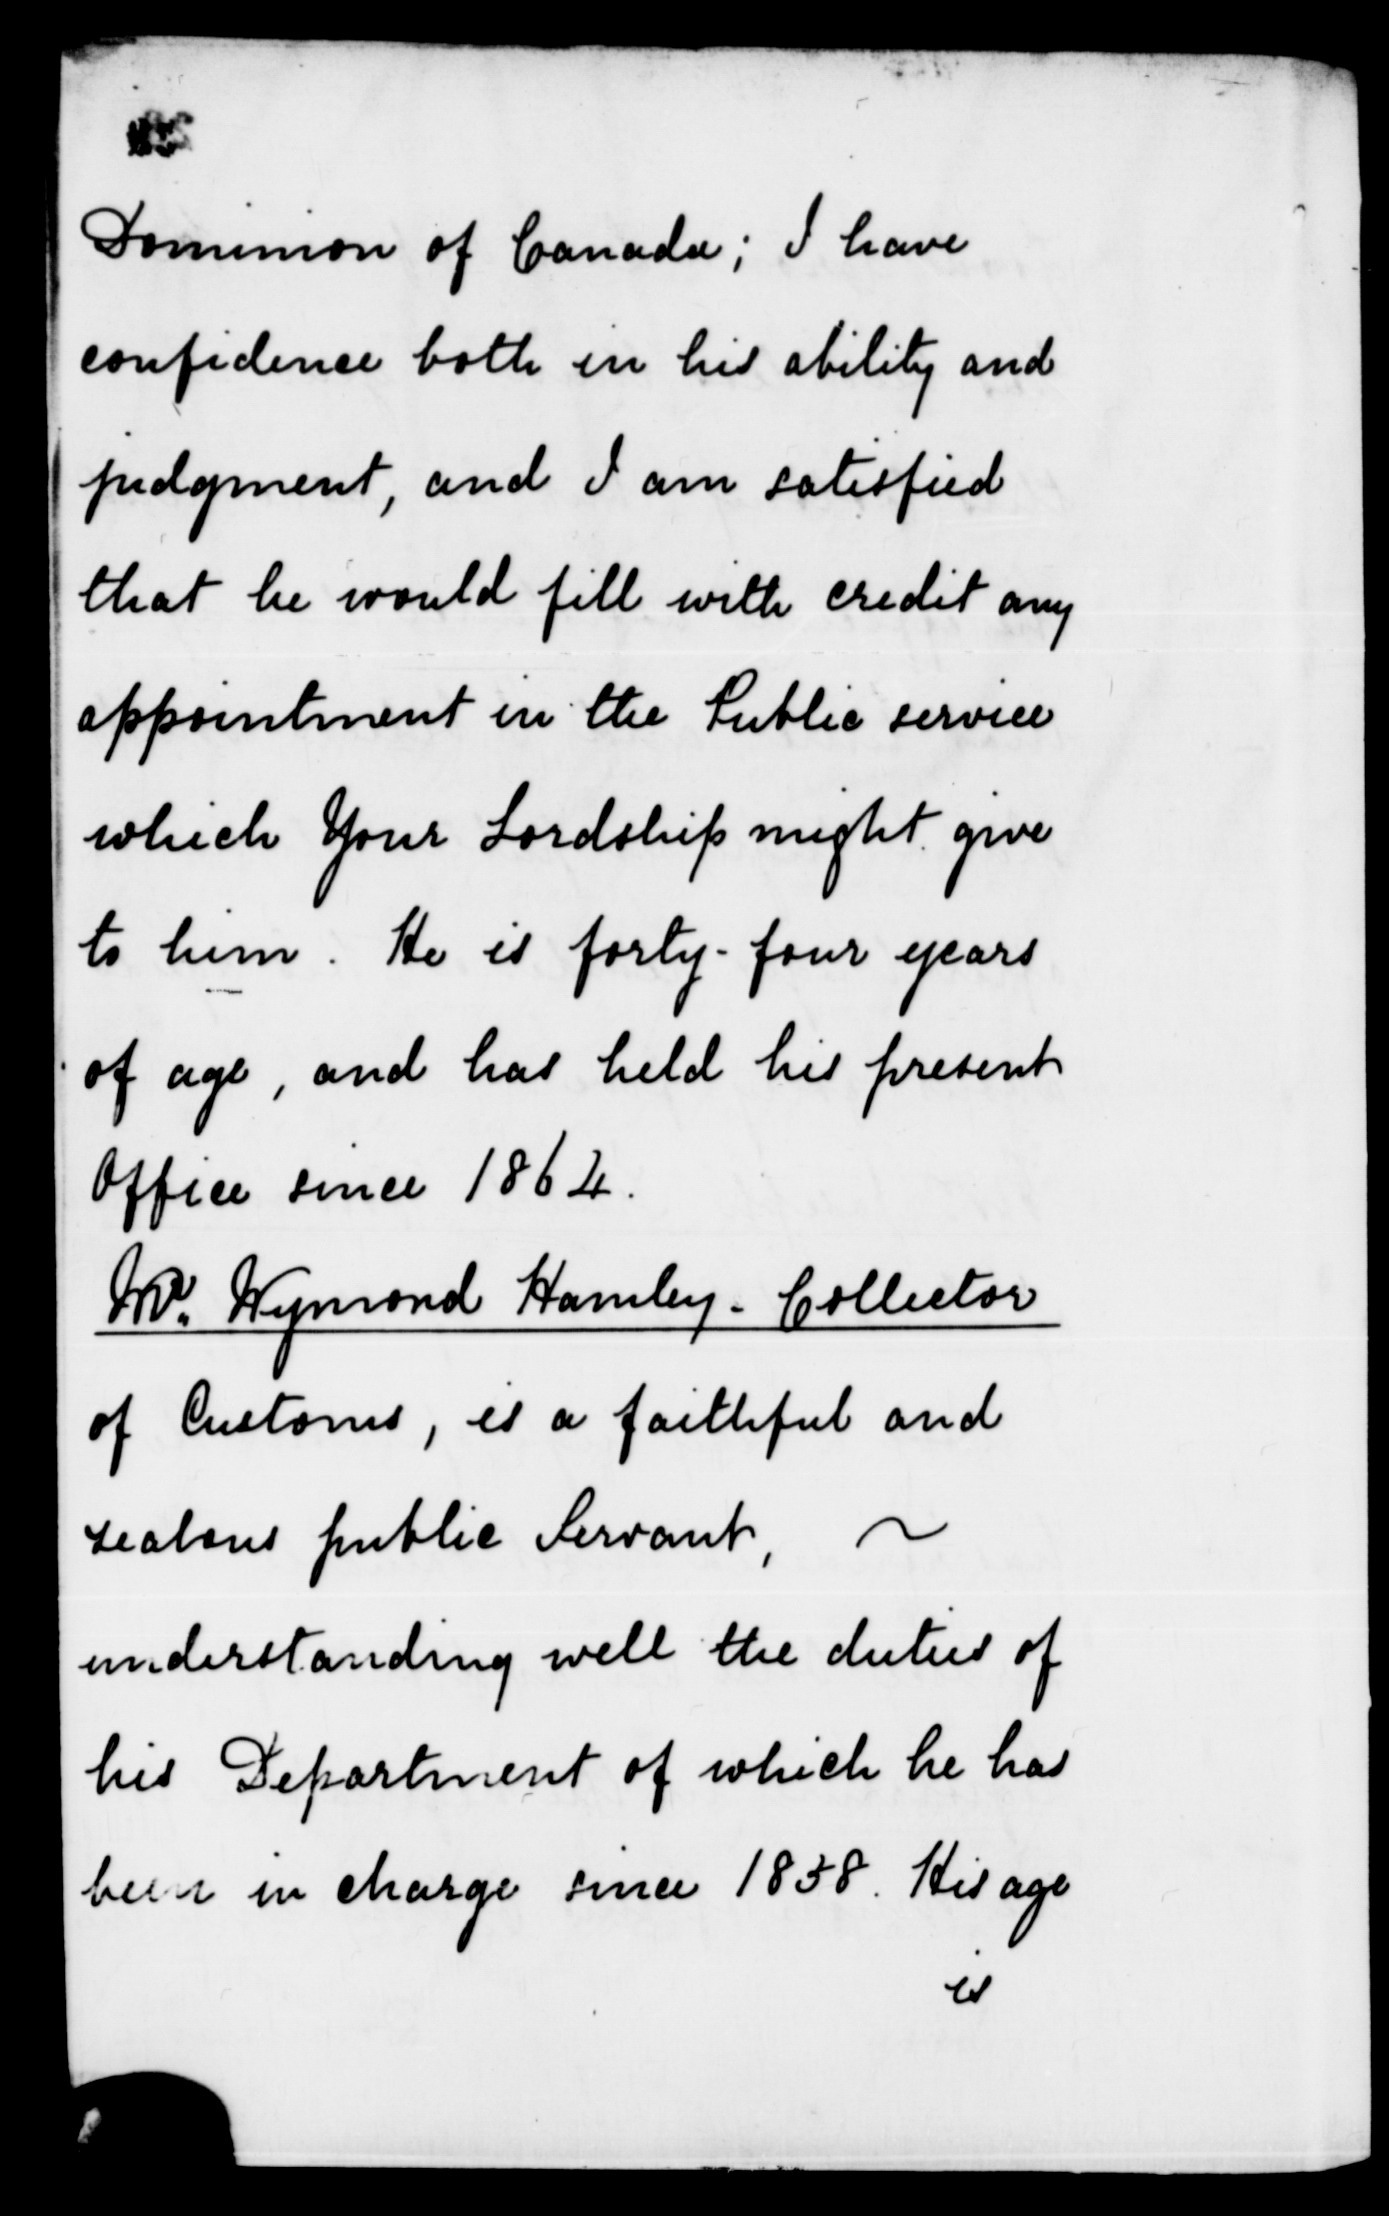 Dominion of Canada; I have
confidence both in his ability and
judgment, and I am satisfied
that he would fill with credit any
appointment in the Public service
which Your Lordship might give
to him. He is forty-four years
of age, and has held his present
Office since 1864.
Mr. Wymond Hamley - Collector
of Customs, is a faithful and
zealous public Servant, ~
understanding well the duties of
his Department of which he has
been in charge since 1858. His age
is